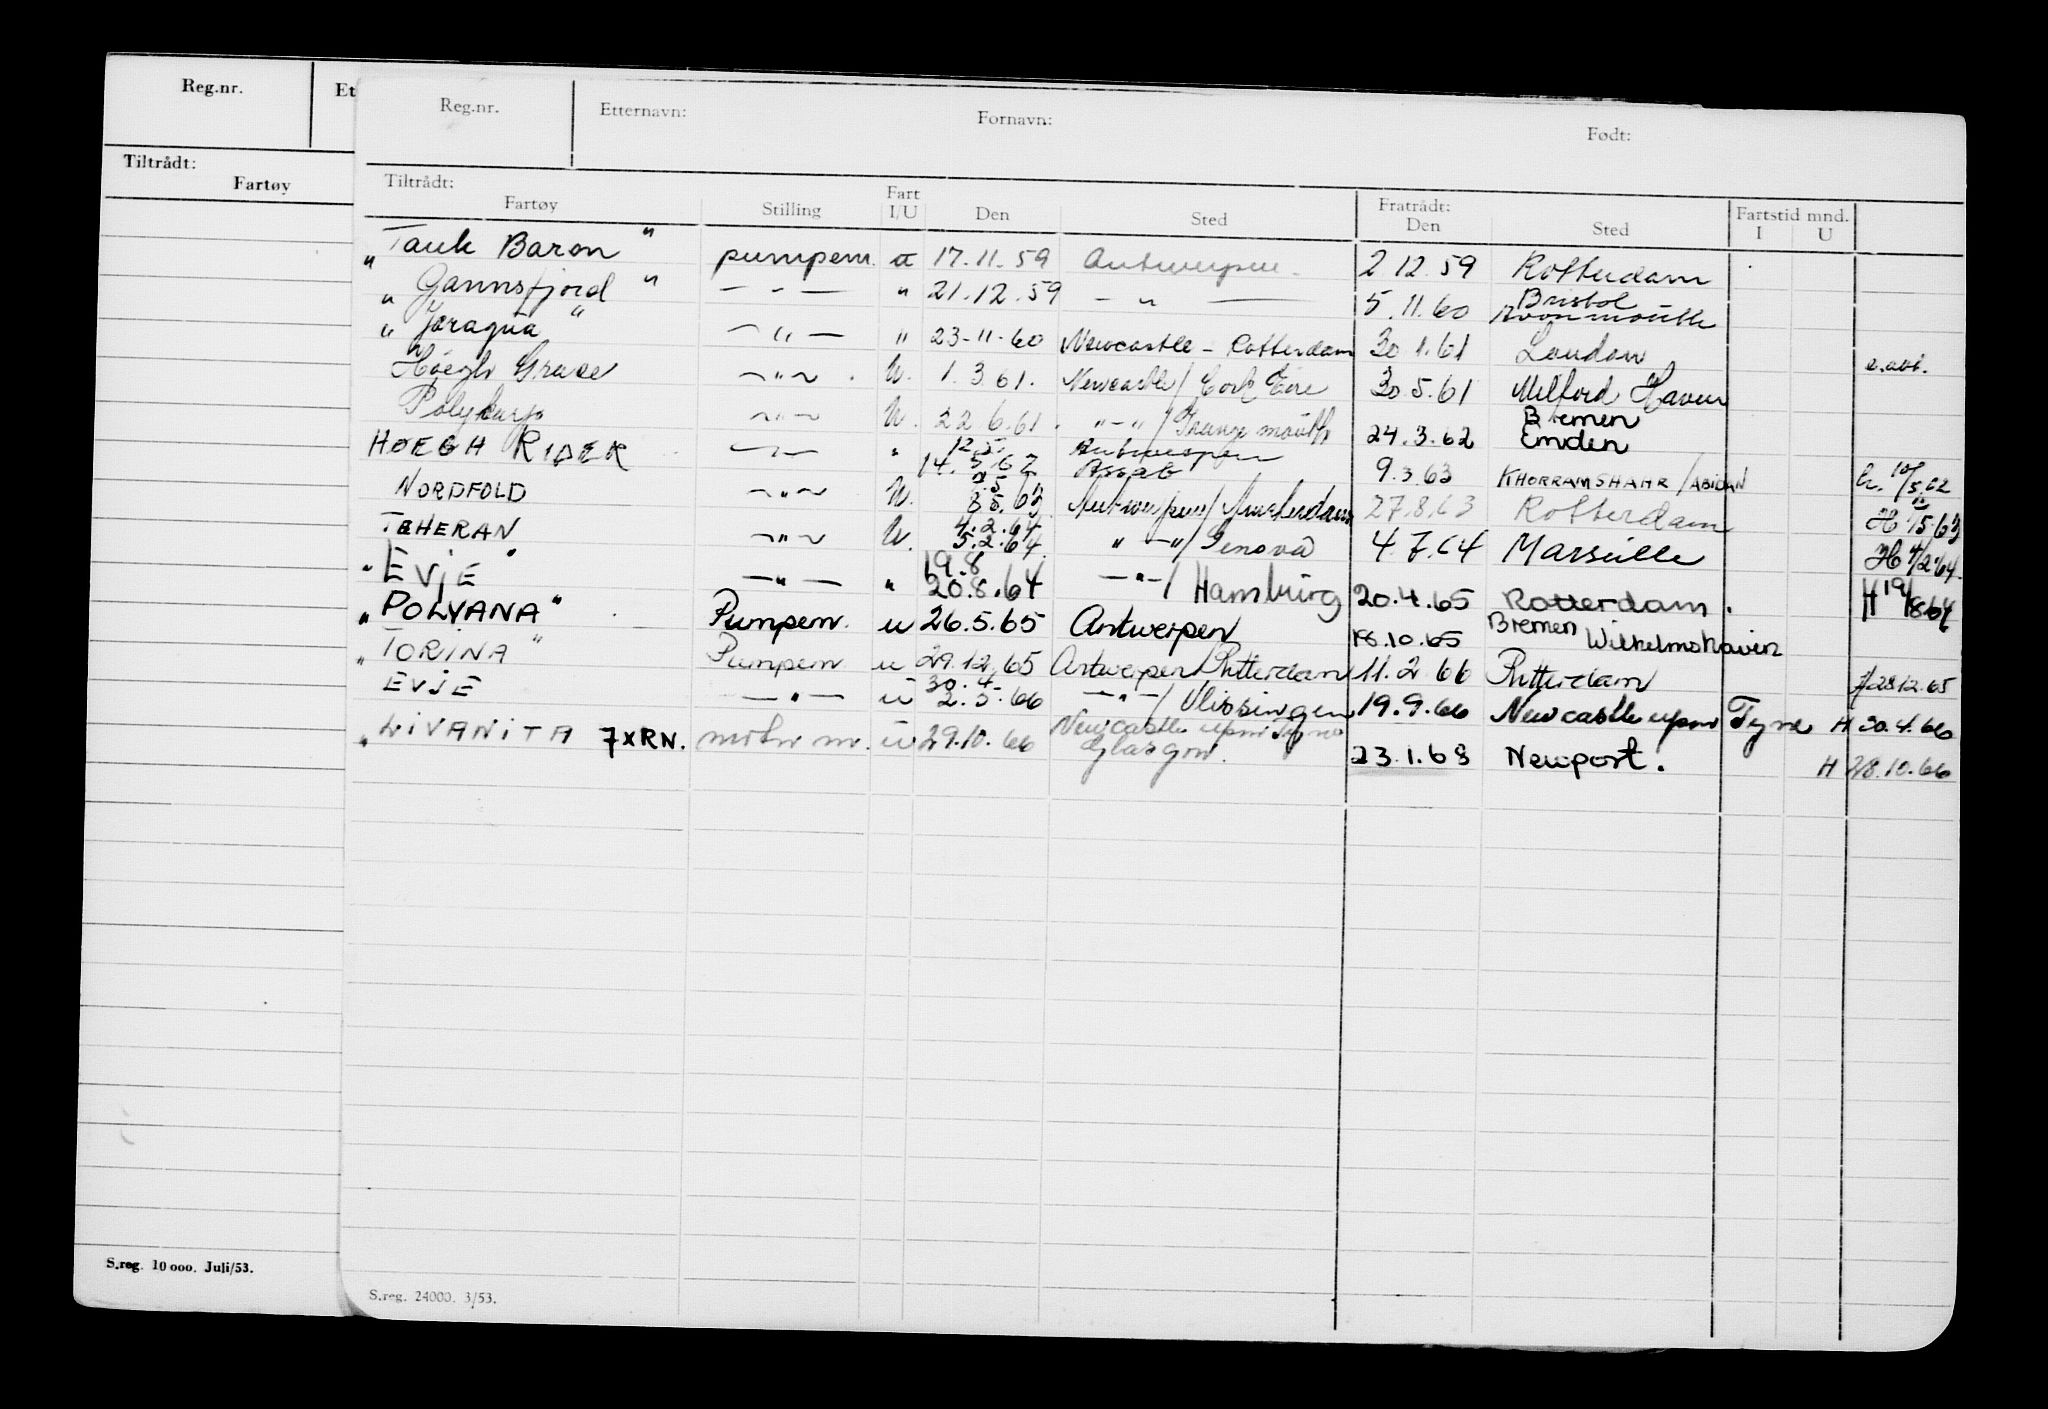 Reg.nr. Et
Tiltrådt:
Fartøy
S.reg. 10 000. Juli/53.
Reg.nr. Etternavn: Fornavn: Født:
Tiltrådt: Fart Fratrådt: Fartstid mnd.
Fartøy Stilling I/U Den Sted Den Sted I U
"Tank Baron" pumpem. u 17.11.59 Antwerpen. 2 12.59 Rotterdam
" Gannsfjord " — " — " 21.12.59 — " — 5.11.60 Bristol Avonmouth
" Jaragua " — " — " 23-11-60 Newcastle - Rotterdam 30.1.61 London
Høegh Grace — " — U. 1.3.61. Newcastle/ Cork Eire 30.5.61 Milford Haven
Polykarp — " — U. 22 6.61. " — " / Grangemouth 24.3.62 Bremen Emden
HØEGH RIDER — " — " 12.5. 14.5.62 Antwerpen Assab 9.3.63 KHORRAMSHAHR /ABIDAN h. 10/5.62
NORDFOLD — " — U. 8.5.63 Antwerpen/ Amsterdam 27.8.63 Rotterdam H /5 63
TEHERAN — " — U. 4.2.64 5.2.64. " — " / Genova 4.7.64 Marseille H 4/2.64.
" EVJE " — " — " 19.8 20.8.64 — " — / Hamburg 20.4.65 Rotterdam. H 19/8.64
" POLYANA " Pumpem. u 26.5.65 Antwerpen 18.10.65 Bremen Wilhelmshaven
" TORINA " Pumpem u 29.12.65 Antwerpen/Rotterdam 11.2 66 Rotterdam H 28.12.65
EVJE — " — u 30.4. 2.5.66 — " — / Vlissingen 19.9.66 Newcastle upon Tyne H 30.4.66
" LIVANITA 7XRN. motorm. u 29.10.66 Newcastle upon Tyne Glasgow. 23.1.68 Newport. H 28.10.66
S.reg. 24000. 3/53.